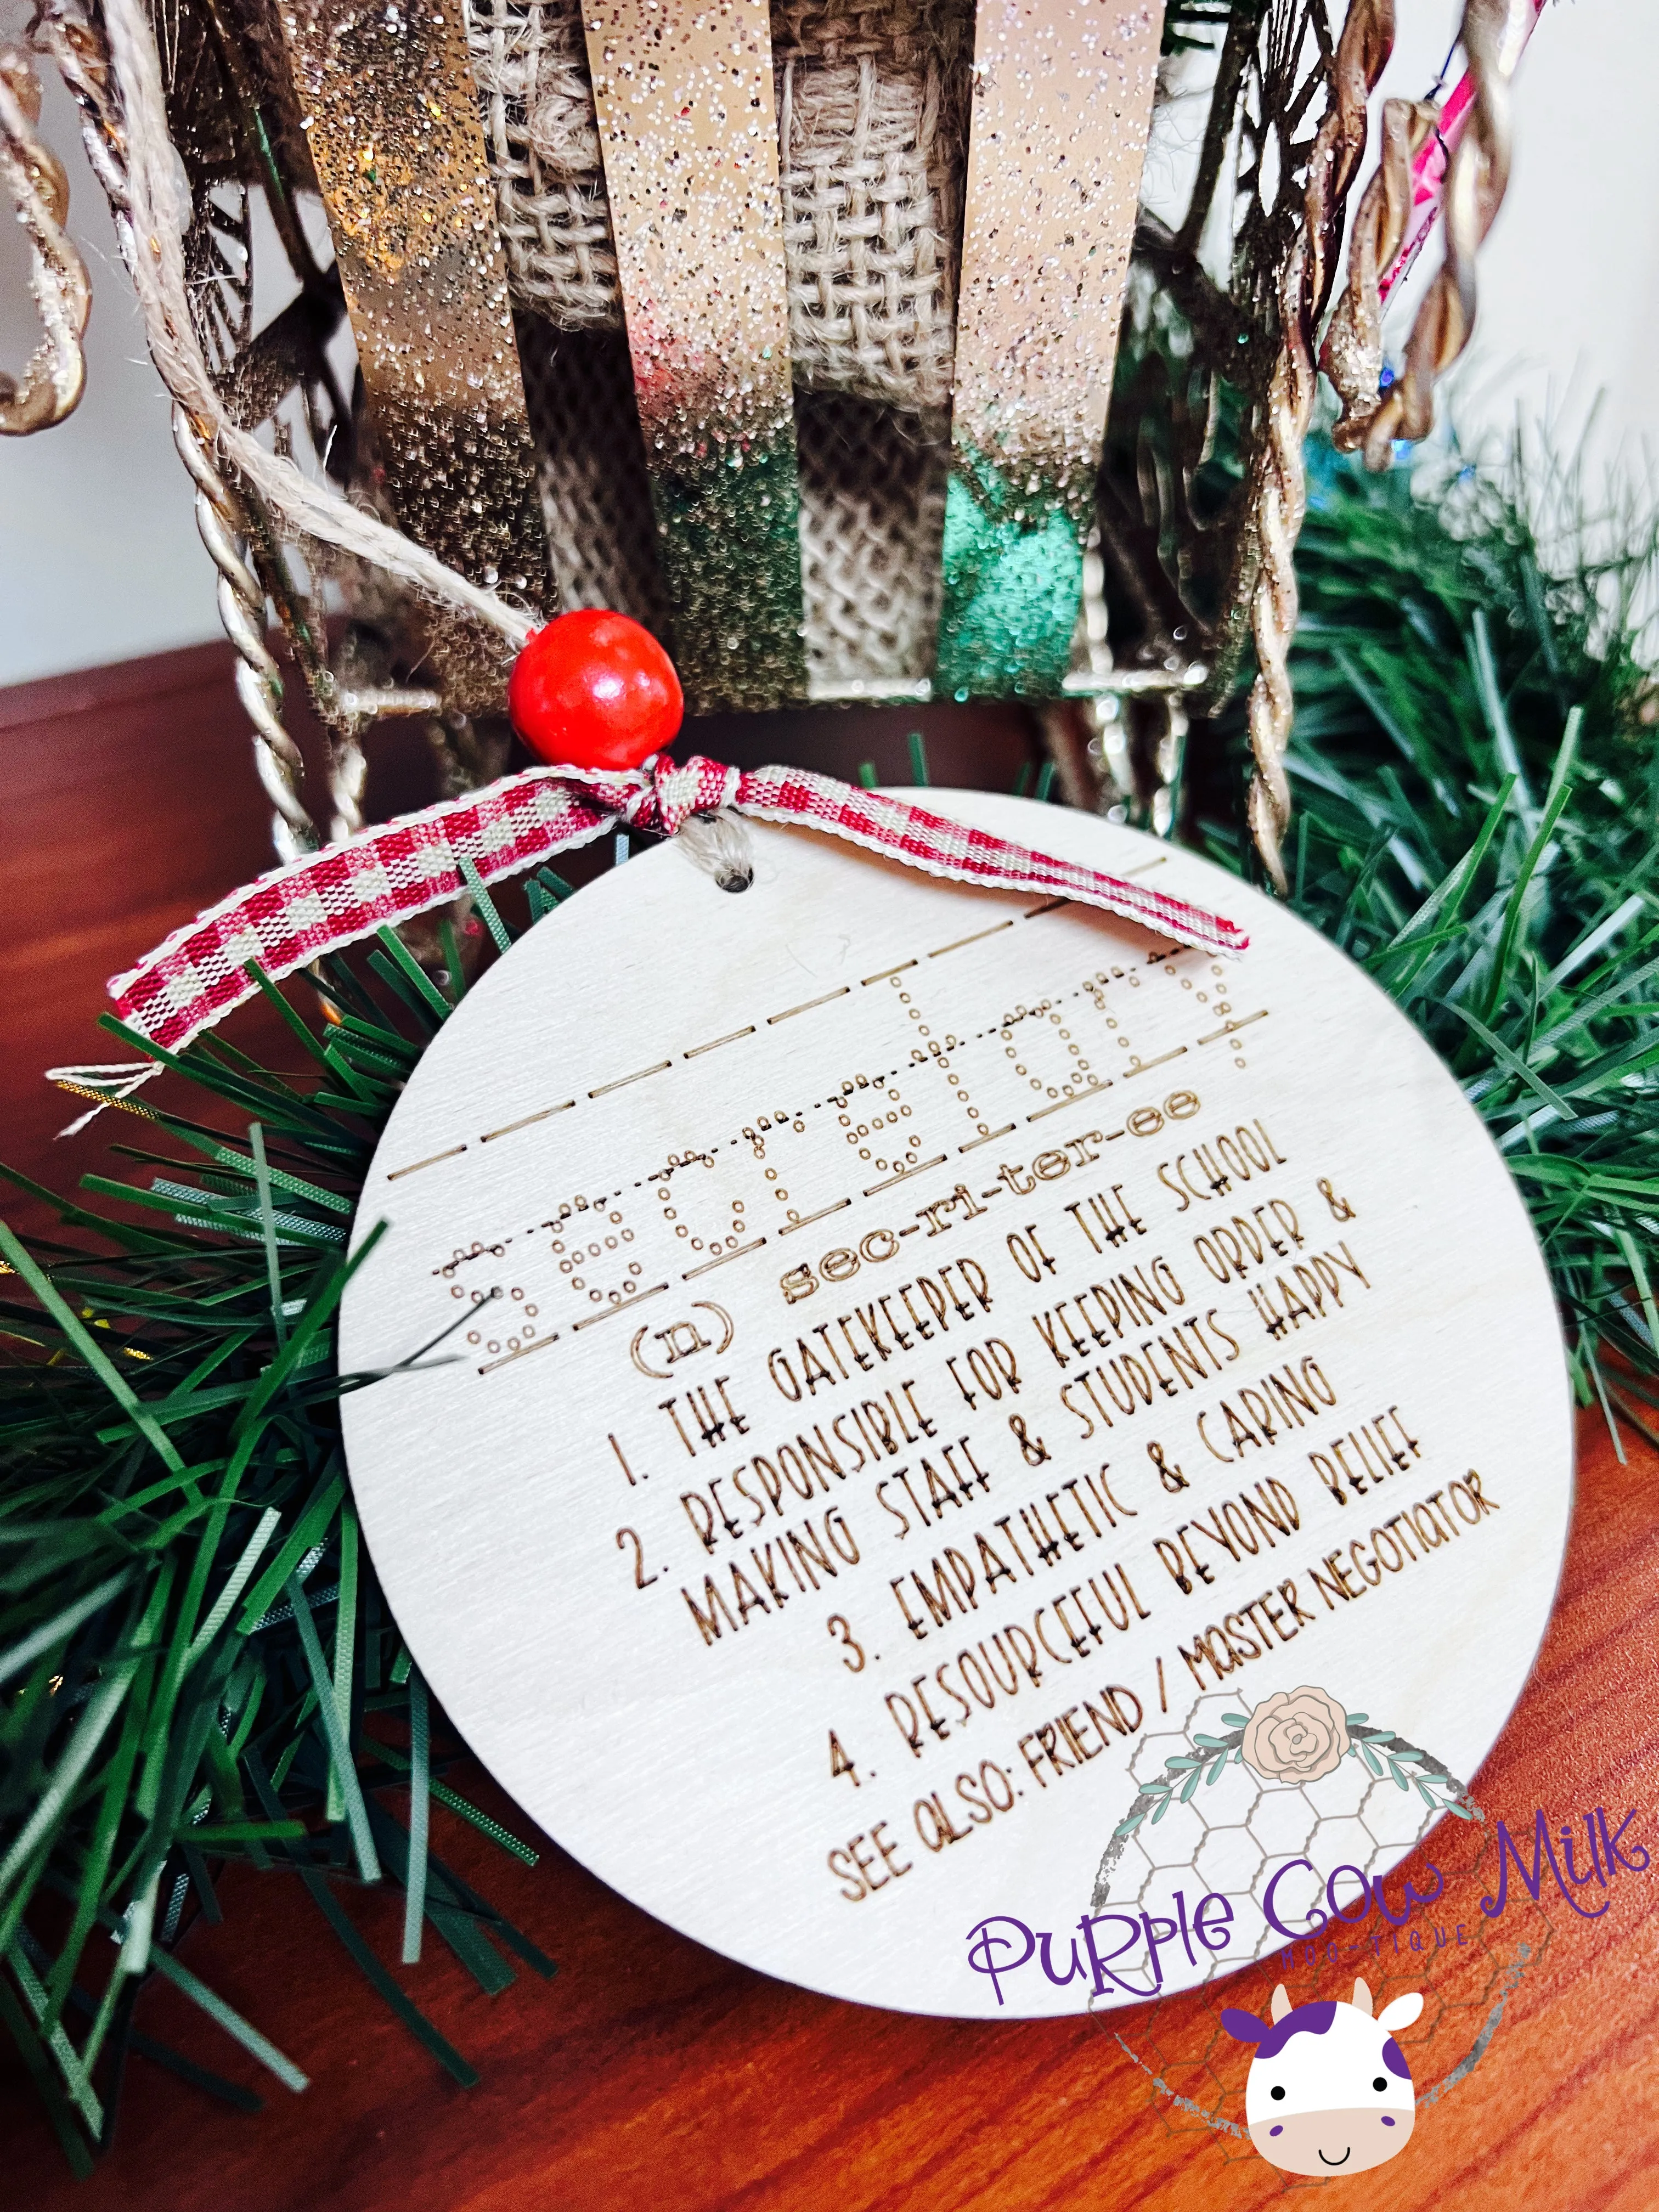 secretary
(n) sec-ri-ter-ee
1. THE GATEKEEPER OF THE SCHOOL
2. RESPONSIBLE FOR KEEPING ORDER &
MAKING STAFF & STUDENTS HAPPY
3. EMPATHETIC & CARING
4. RESOURCEFUL BEYOND BELIEF
SEE ALSO: FRIEND / MASTER NEGOTIATOR
PURPle Cow Milk
MOO-TIQUE